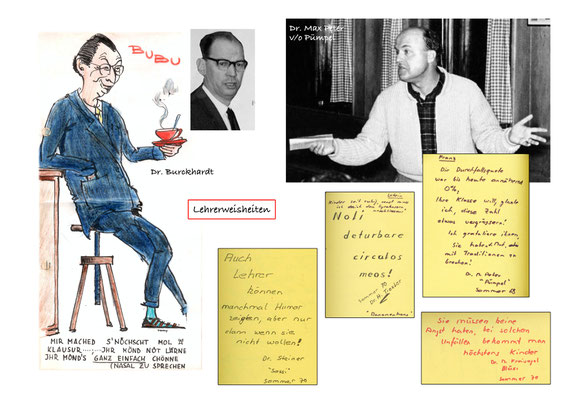 BUBU
Dr. Max Peter
v/o Pümpel
Dr. Burckhardt
Lehrerweisheiten
MIR MACHED S'NÖCHSCHT MOL II
KLAUSUR....;...JHR KÖND NÖT LÄRNE
JHR MÖND'S GANZ EINFACH CHÖNNE
(NASAL ZU SPRECHEN
Auch
Lehrer
können
manchmal Humor
zeigen, aber nur
dann wenn sie
nicht wollen!
Dr. Steiner
"Sassi"
Sommer 70
Latein
Kinder seit ruhig, sonst muss
ich durch den Syrakusen
Noli
deturbare
circulos
meos!
Sommer 70
Dr. H.
Franz
Die Durchfallsquote
war bis heute annähernd
0%,
Ihre Klasse will, glaube
ich, diese Zahl
etwas vergrössern!
Ich gratuliere ihnen,
Sie haben d. Mut, mit
mit Traditionen zu
brechen!
Dr. M. Peter
"Pümpel"
Sommer 68
Sie müssen keine
Angst haben, bei solchen
Unfällen bekommt man
höchstens Kinder
Dr.
Sommer 70